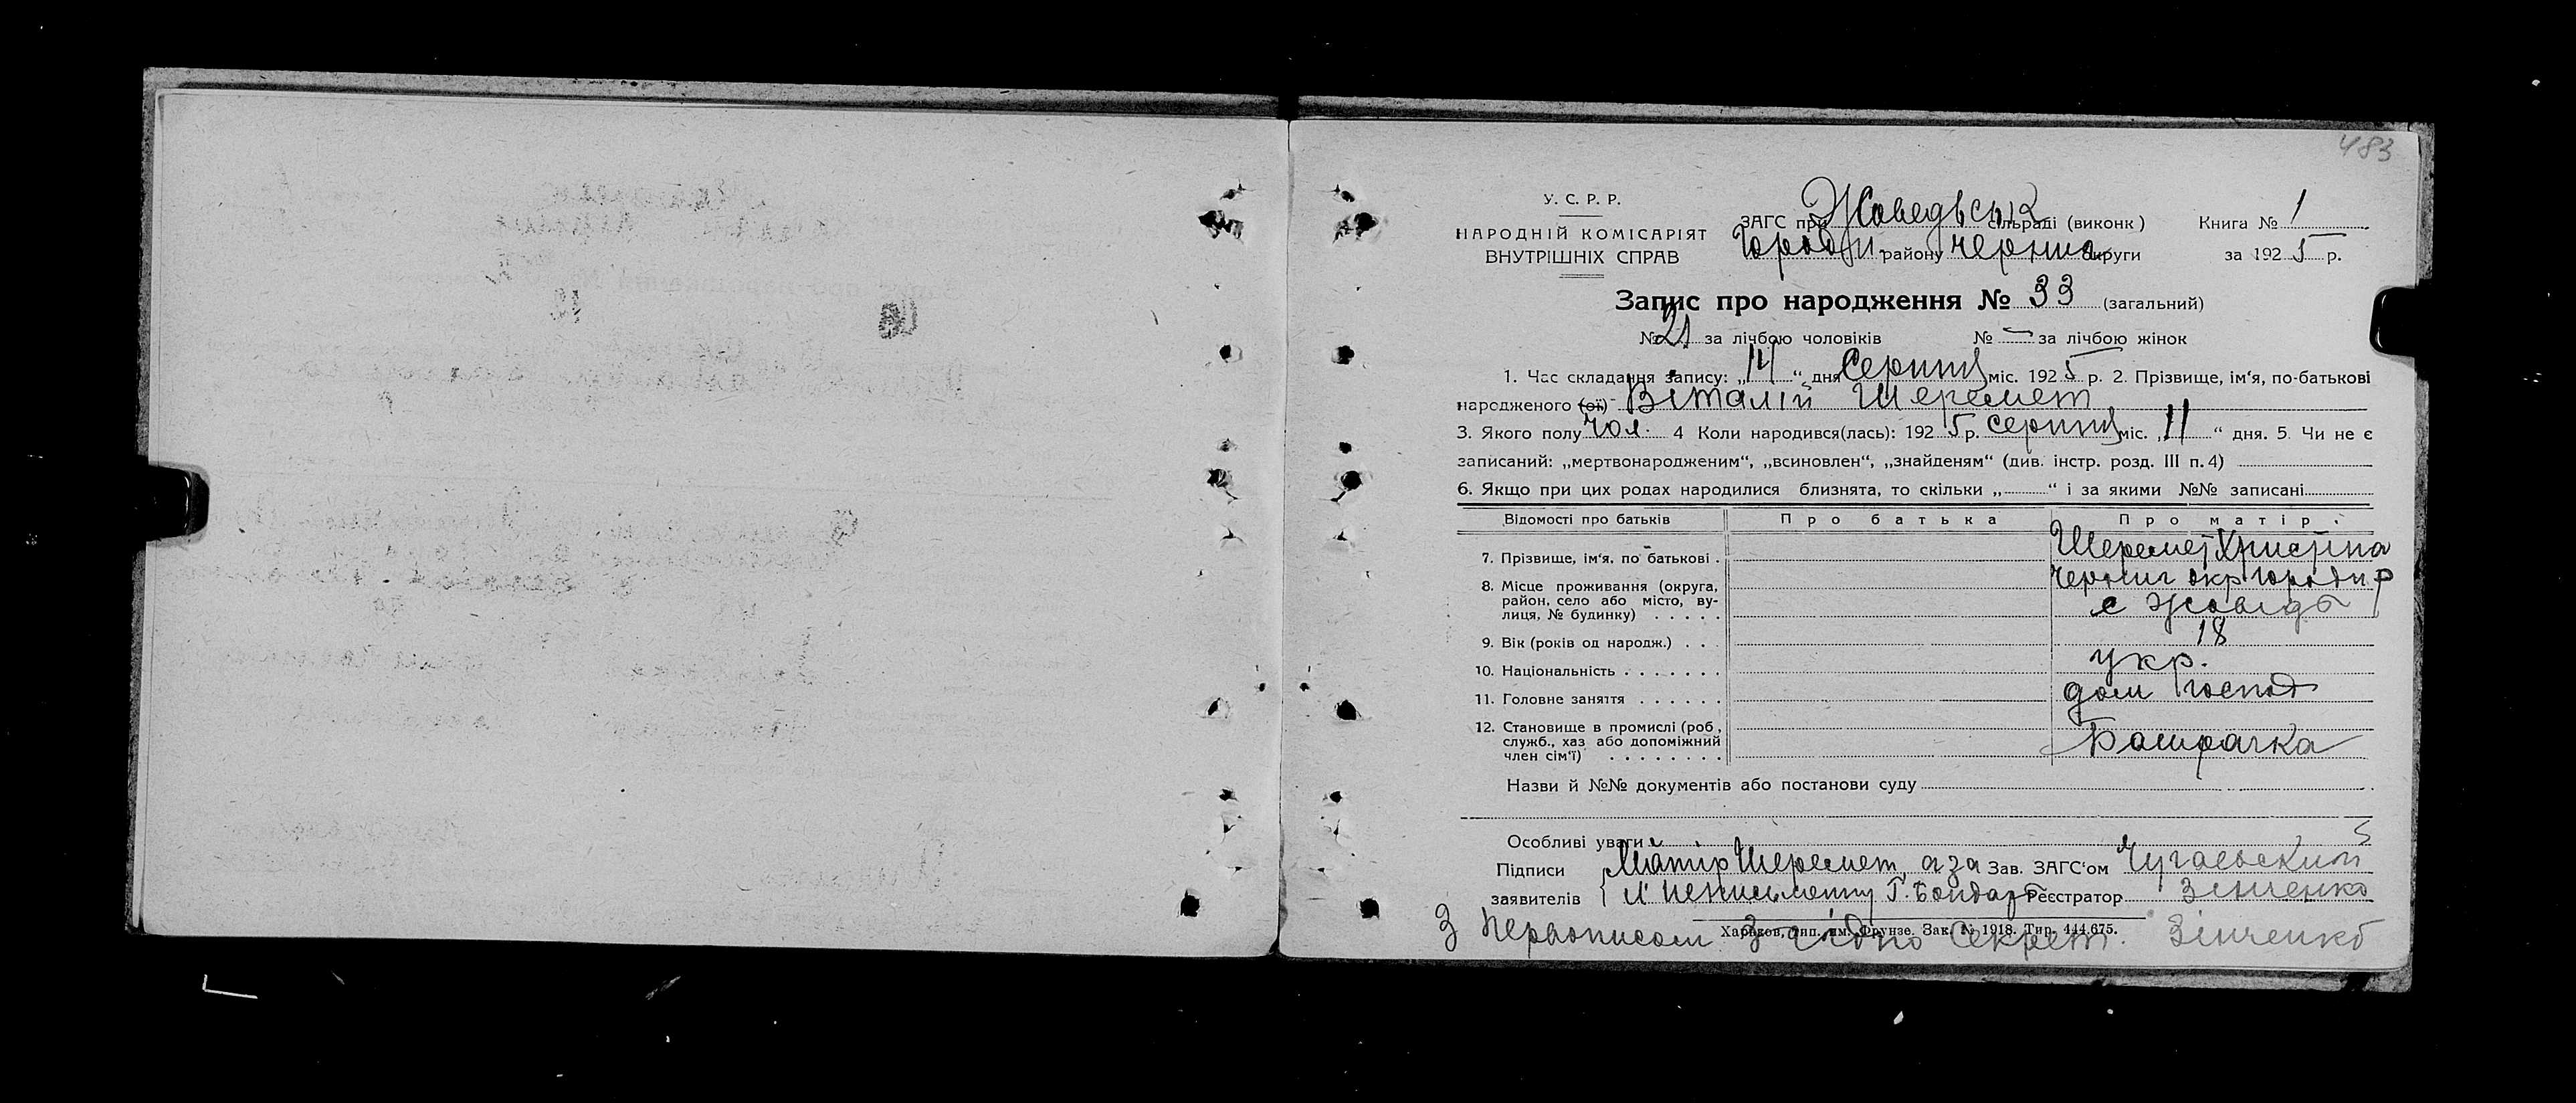 483
У. С. Р. Р.
НАРОДНІЙ КОМІСАРІЯТ
ВНУТРІШНІХ СПРАВ
ЗАГС при Жоведьськ сільраді (виконк)
Городн району Черниг округи
Книга № 1
за 1925 р.
Запис про народження № 33 (загальний)
№ 21 за лічбою чоловіків № — за лічбою жінок
1. Час складання запису: „14“ дня Серпня міс. 1925 р. 2. Прізвище, ім‘я, по-батькові
народженого (ої) Віталій Шеремет
3. Якого полу чол. 4 Коли народився(лась): 1925 р. серпня міс. „11“ дня. 5. Чи не є
записаний: „мертвонародженим“, „всиновлен“, „знайденям“ (див. інстр. розд. III п. 4)
6. Якщо при цих родах народилися близнята, то скільки „ “ і за якими №№ записані
Відомості про батьків Про батька Про матір
7. Прізвище, ім‘я, по батькові . Шеремет Христина
8. Місце проживання (округа, район, село або місто, вулиця, № будинку) . . . . . Черниг окр Городн р
с Жоведь
9. Вік (років од народж.) . . . 18
10. Національність . . . . . . . укр.
11. Головне заняття . . . . . . дом господ
12. Становище в промислі (роб, служб., хаз або допоміжний член сім‘ї) . . . . . . . . Батрачка
Назви й №№ документів або постанови суду
Особливі уваги
Підписи Матір Шеремет, а за Зав. ЗАГС‘ом Чугаевский
заявителів її неписьменну Г. Бондарь Реєстратор Зінченко
Харьков, тип. им. Фрунзе. Зак. № 1918. Тир. 444.675.
З Первописом згідно Секрет. Зінченко